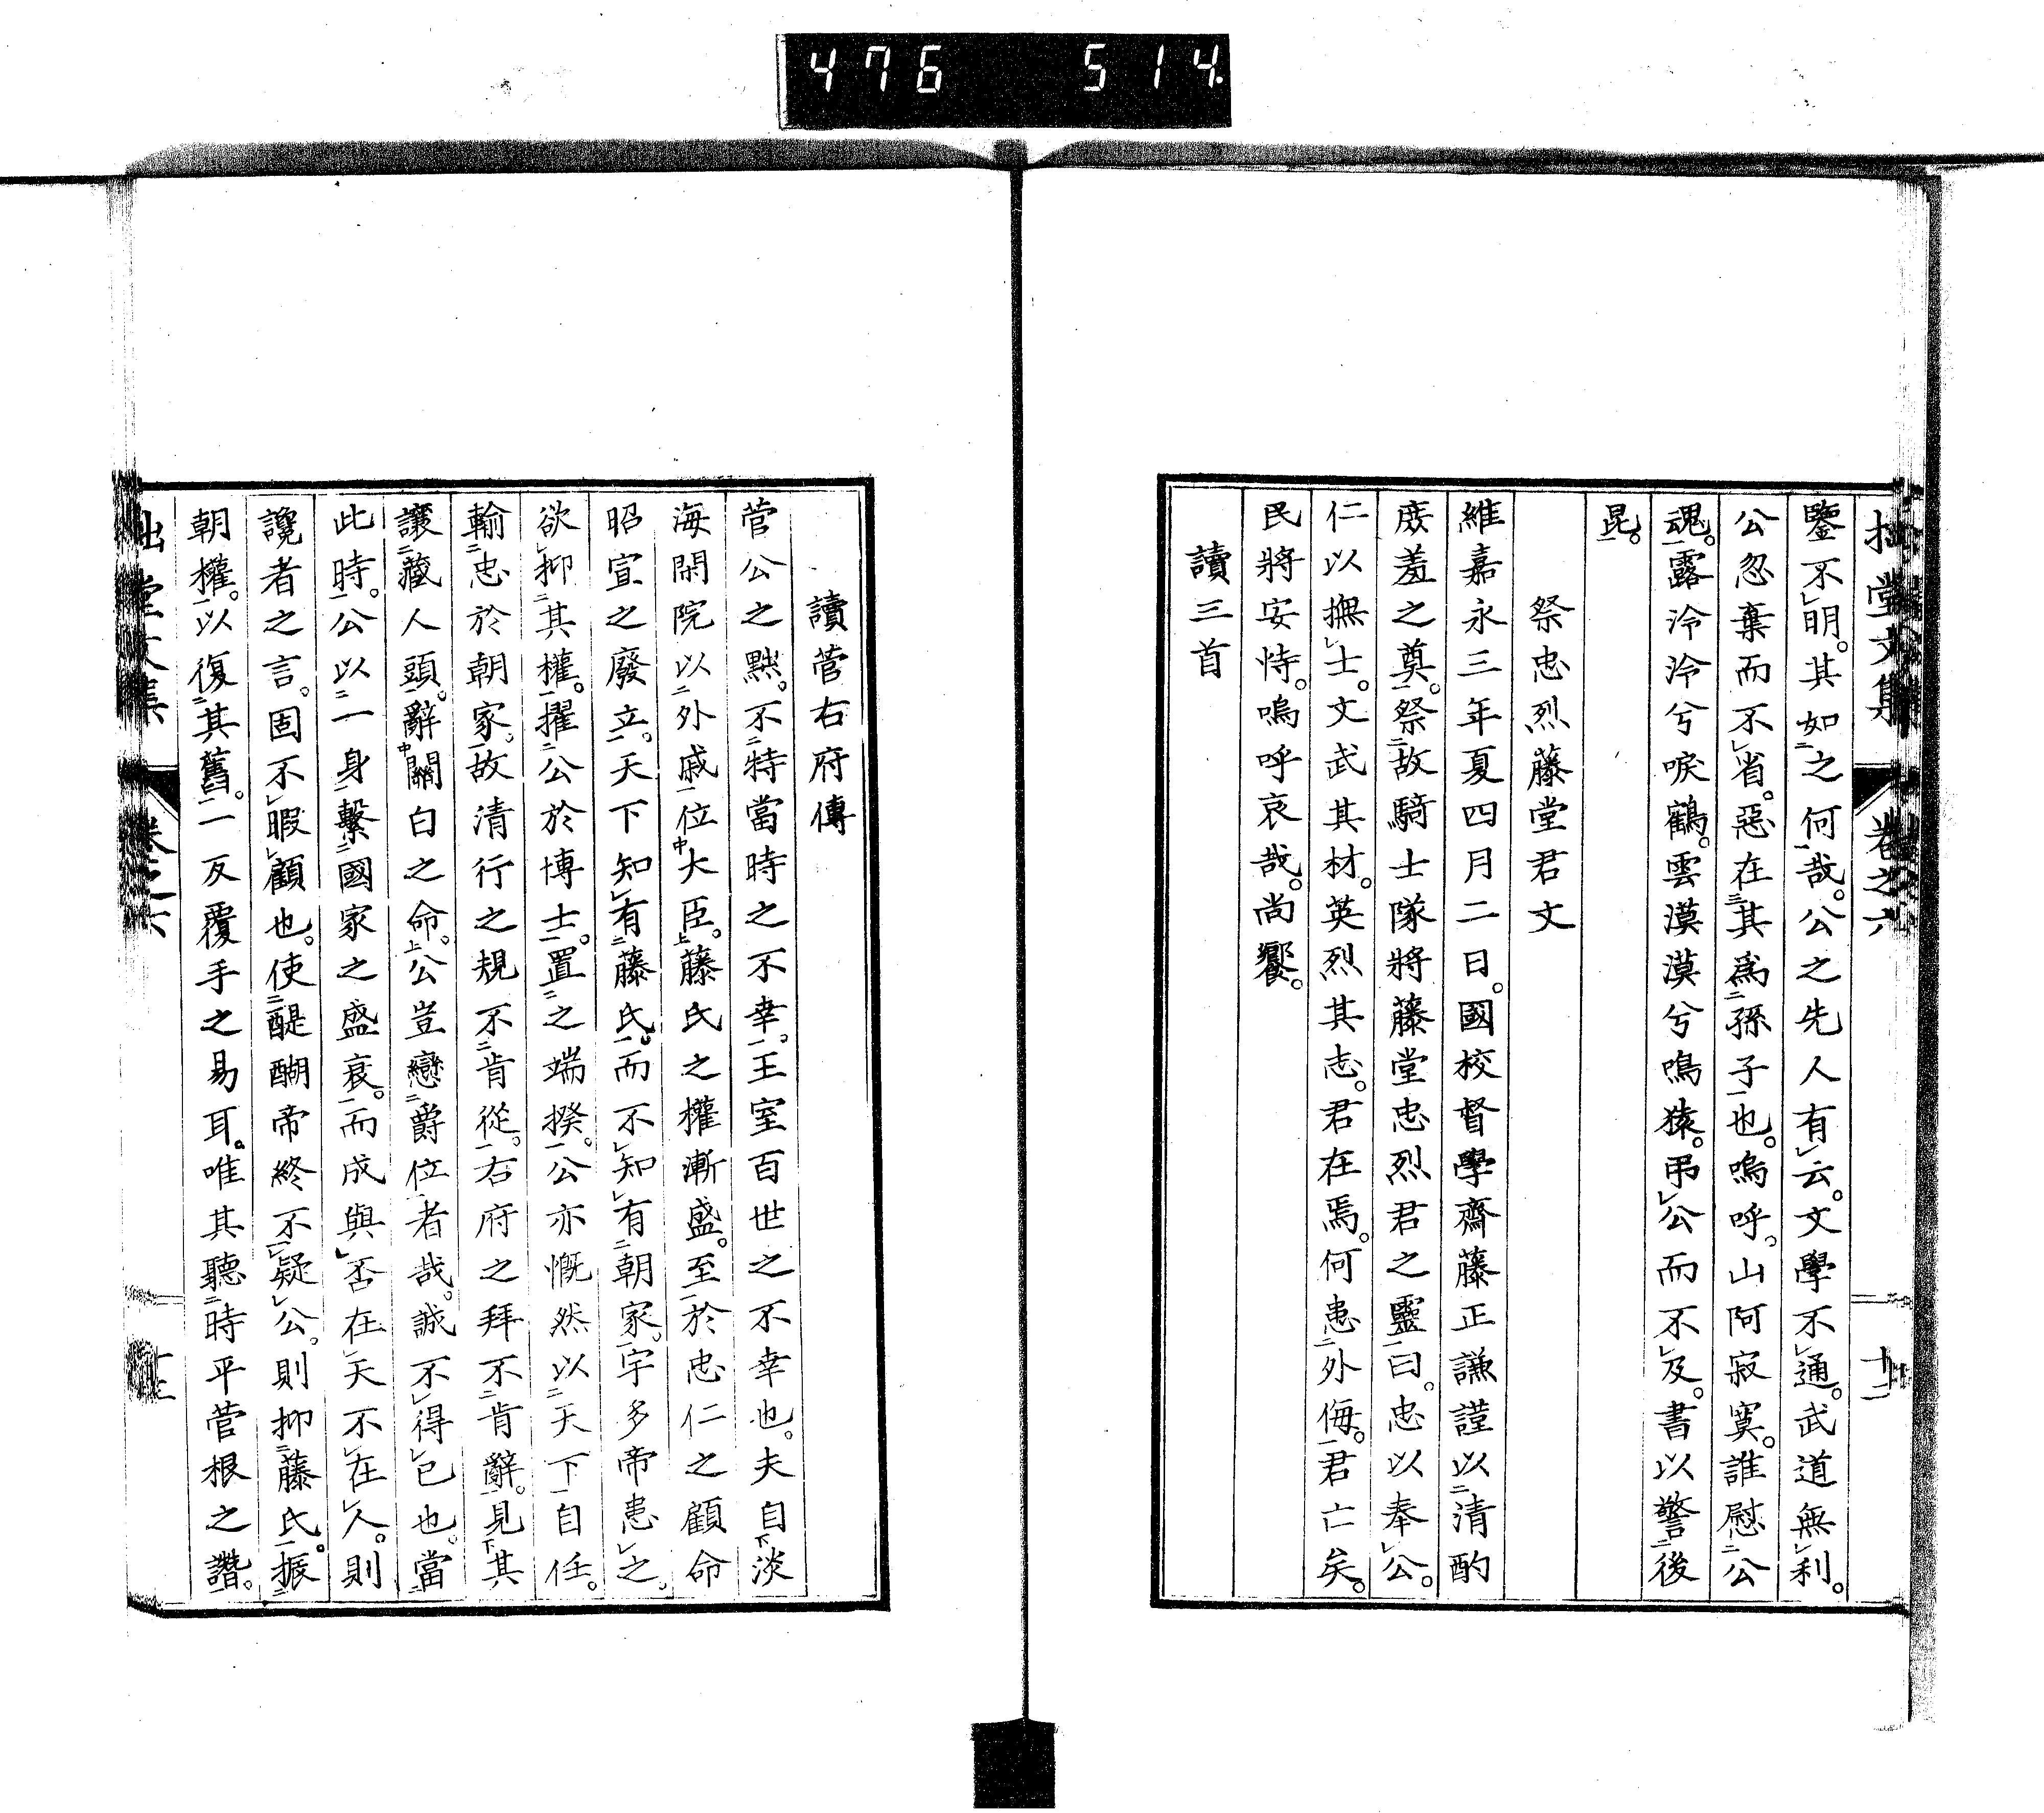 476 514
拙堂文集 卷之六 十二
鑒不明。其如之何哉。公之先人有云。文學不通。武道無利。
公忽棄而不省。惡在其爲孫子也。嗚呼。山阿寂寞。誰慰公
魂。露泠泠兮唳鶴。雲漠漠兮鳴猿。弔公而不及。書以警後
昆。
祭忠烈藤堂君文
維嘉永三年夏四月二日。國校督學齋藤正謙謹以清酌
庶羞之奠。祭故騎士隊將藤堂忠烈君之靈曰。忠以奉公。
仁以撫士。文武其材。英烈其志。君在焉。何患外侮。君亡矣。
民將安恃。嗚呼哀哉。尚饗。
讀三首
讀菅右府傳
菅公之黜。不特當時之不幸。王室百世之不幸也。夫自淡
海閑院以外戚位大臣。藤氏之權漸盛。至於忠仁之顧命
昭宣之廢立。天下知有藤氏。而不知有朝家。宇多帝患之。
欲抑其權。擢公於博士。置之端揆。公亦慨然以天下自任。
輸忠於朝家。故清行之規不肯從。右府之拜不肯辭。見其
讓藏人頭。辭關白之命。公豈戀爵位者哉。誠不得已也。當
此時。公以一身繫國家之盛衰。而成與否在天不在人。則
讒者之言。固不暇顧也。使醍醐帝終不疑公。則抑藤氏。振
朝權。以復其舊。一反覆手之易耳。唯其聽時平菅根之譖。
拙堂文集 卷之六 十三